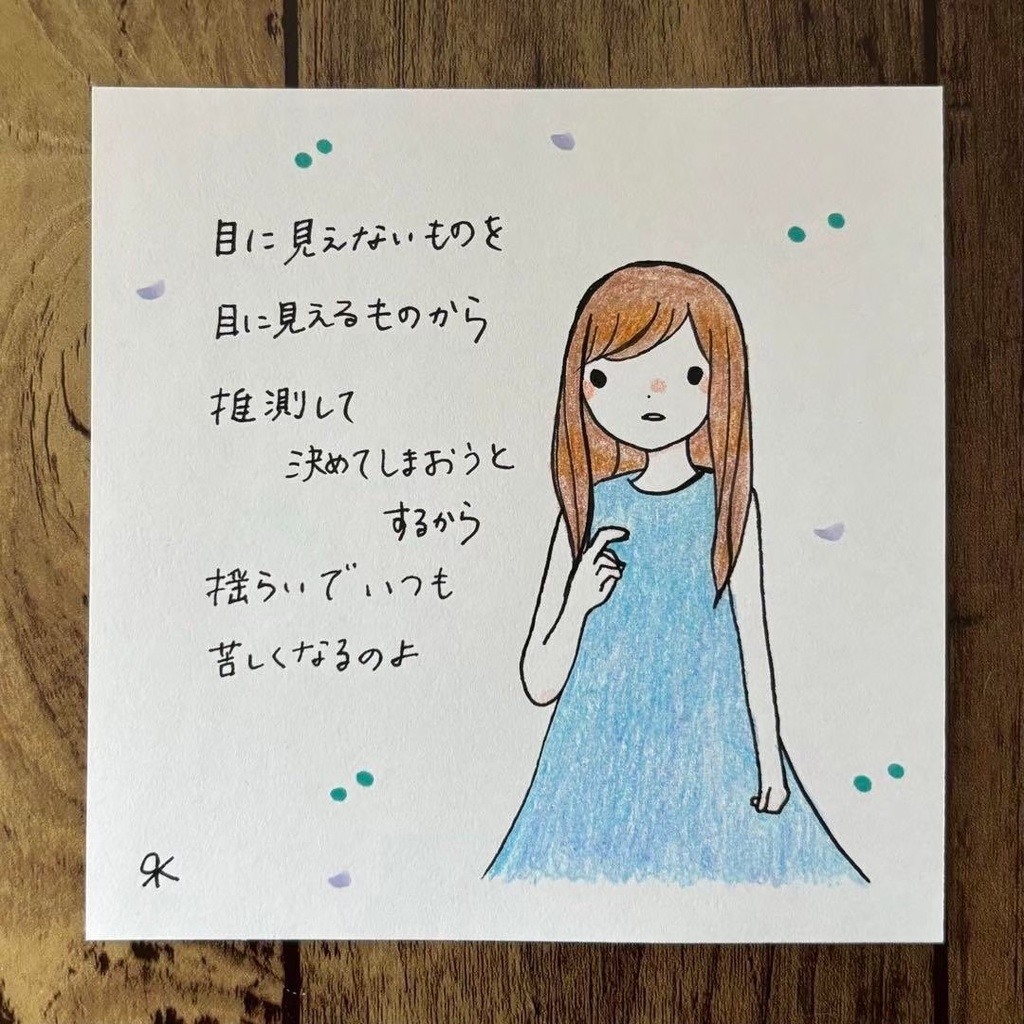 目に見えないものを
目に見えるものから
推測して
決めてしまおうと
するから
揺らいでいつも
苦しくなるのよ